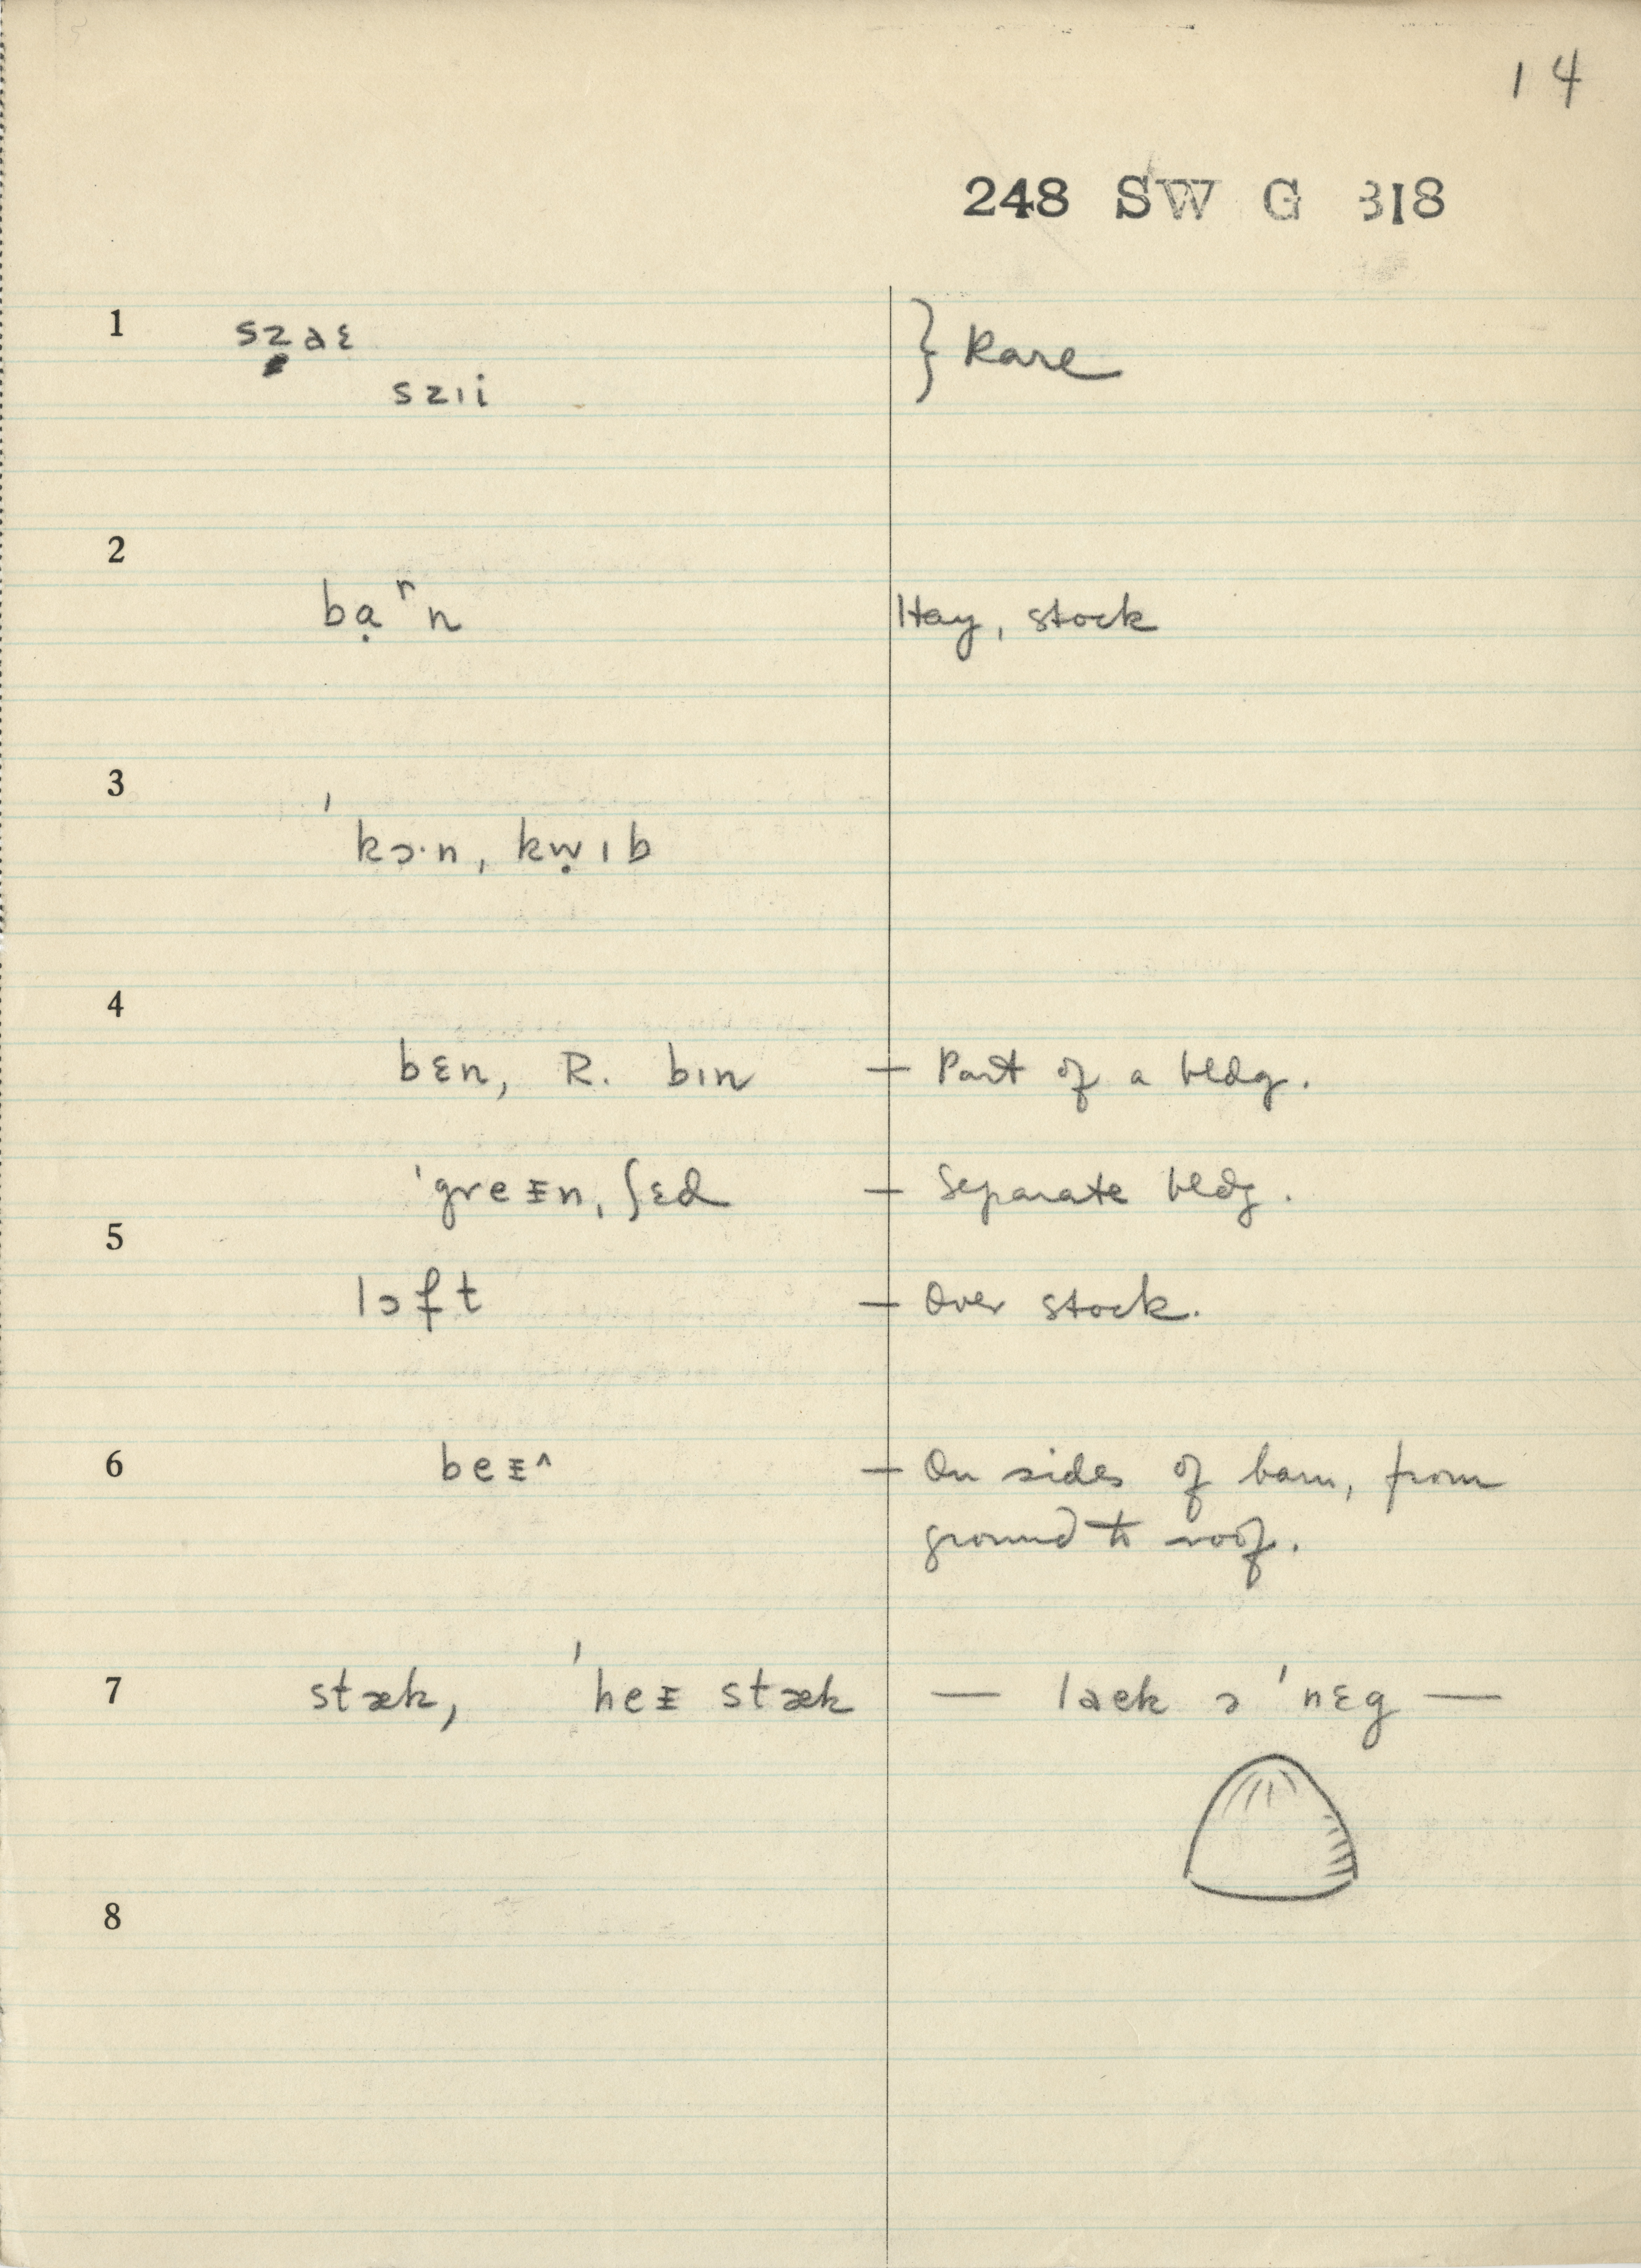 14
248 SW G 318
1 szaɛ } Rare
szıi
2
bạʳn Hay, stock
3
ˈkɔ·n, kẉıb
4
bɛn, R. bın — Part of a bldg.
ˈgreᵻn, ʃɛd — Separate bldg.
5
lɔft — Over stock.
6 beᵻ^ — On sides of barn, from
ground to roof.
7 stæk, ˈheᵻ stæk — laek ə ˈnɛg —
8